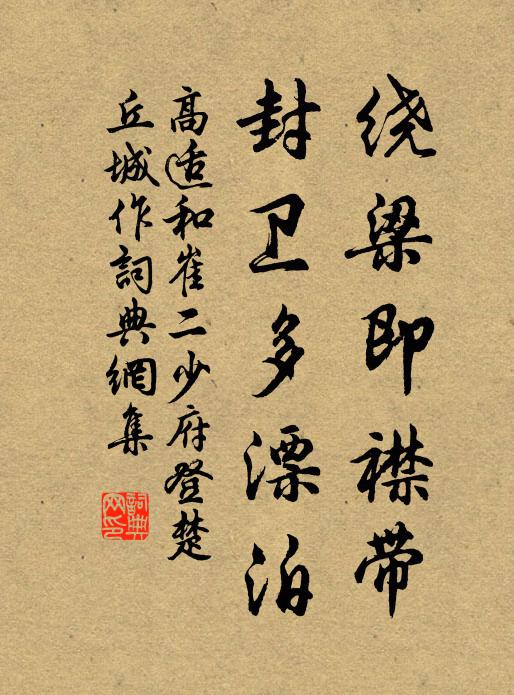 绕梁即襟带
封卫多漂泊
高适和崔二少府登楚
丘城作詞典網集
詞典网印